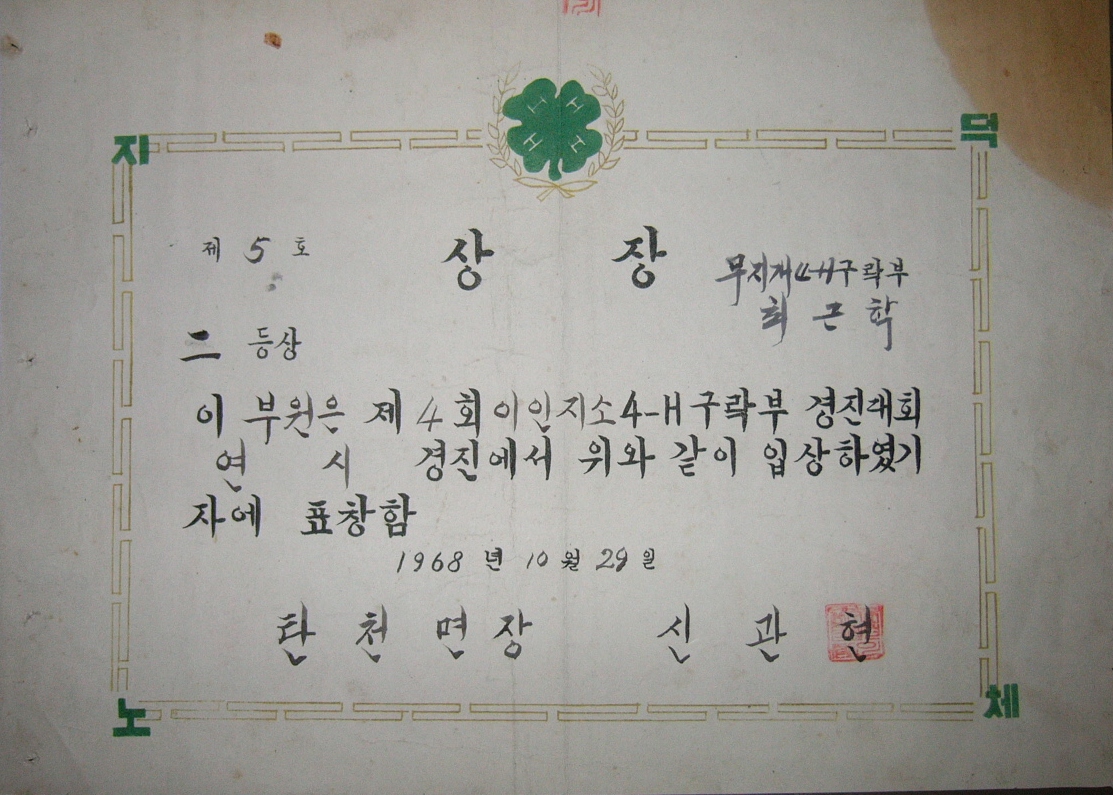 지 덕
H H H H
제 5 호
상 장
무지개4-H구락부
최근학
二 등상
이 부원은 제 4 회 이인지소4-H구락부 경진대회
연 시 경진에서 위와 같이 입상하였기
자에 표창함
1968 년 10 월 29 일
탄 천 면 장 신 관 현
노 체